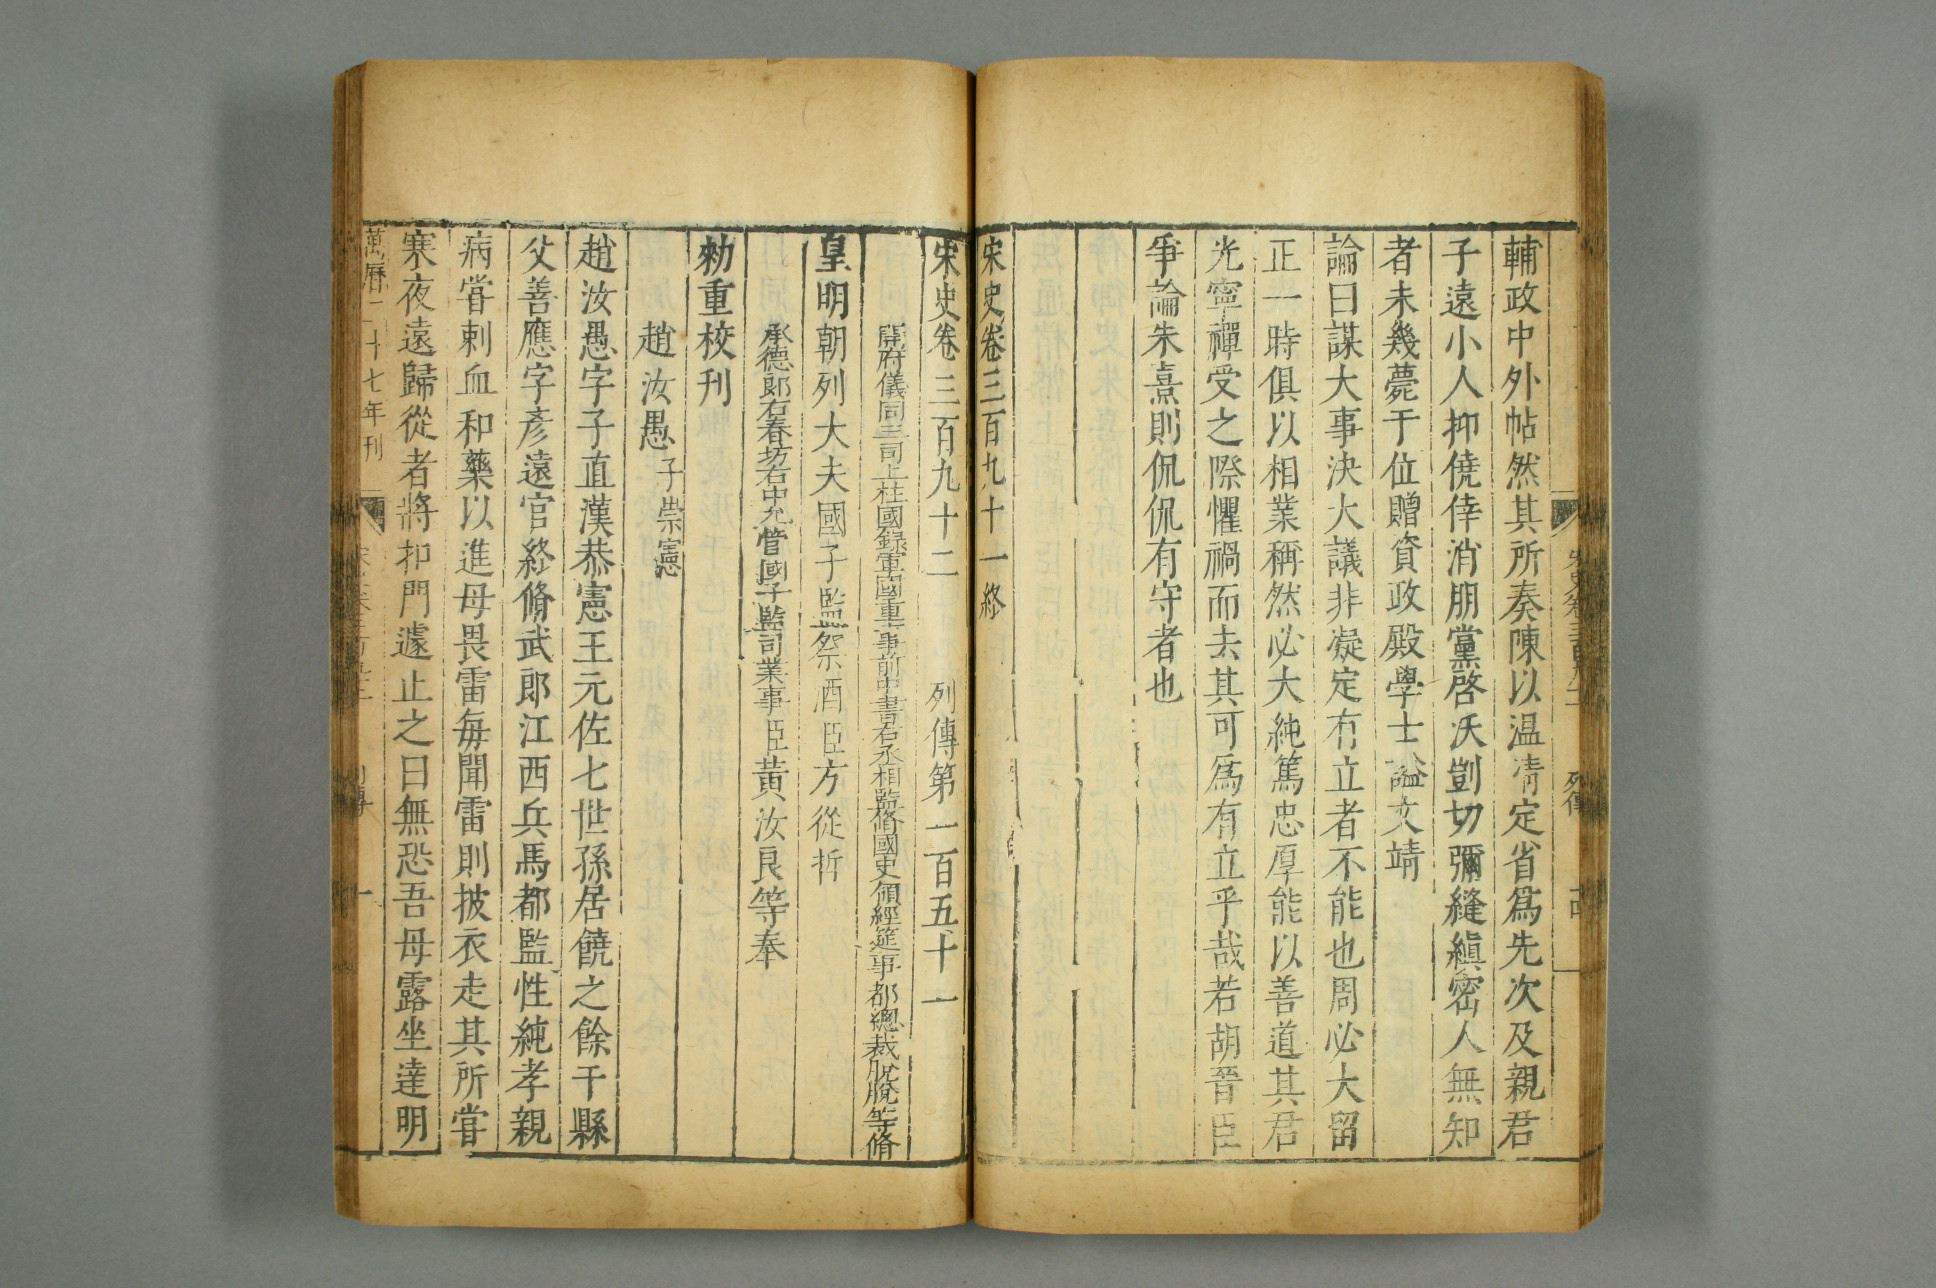 輔政中外帖然其所奏陳以温凊定省爲先次及親君
子遠小人抑僥倖消朋黨啓沃剴切彌縫縝密人無知
者未幾薨于位贈資政殿學士謚文靖
論曰謀大事決大議非凝定有立者不能也周必大留
正一時俱以相業稱然必大純篤忠厚能以善道其君
光寧禪受之際懼禍而去其可爲有立乎哉若胡晉臣
爭論朱熹則侃侃有守者也
宋史卷三百九十一終
宋史卷三百九十二 列傳第一百五十一
開府儀同三司上柱國錄軍國重事前中書右丞相監脩國史領經筵事都總裁脫脫等脩
皇明朝列大夫國子監祭酒臣方從哲
承德郎右春坊右中允管國子監司業事臣黃汝良等奉
勑重校刊
趙汝愚 子崇憲
趙汝愚字子直漢恭憲王元佐七世孫居饒之餘干縣
父善應字彥遠官終脩武郎江西兵馬都監性純孝親
病嘗刺血和藥以進母畏雷每聞雷則披衣走其所嘗
寒夜遠歸從者將扣門遽止之曰無恐吾母露坐達明
萬曆二十七年刊